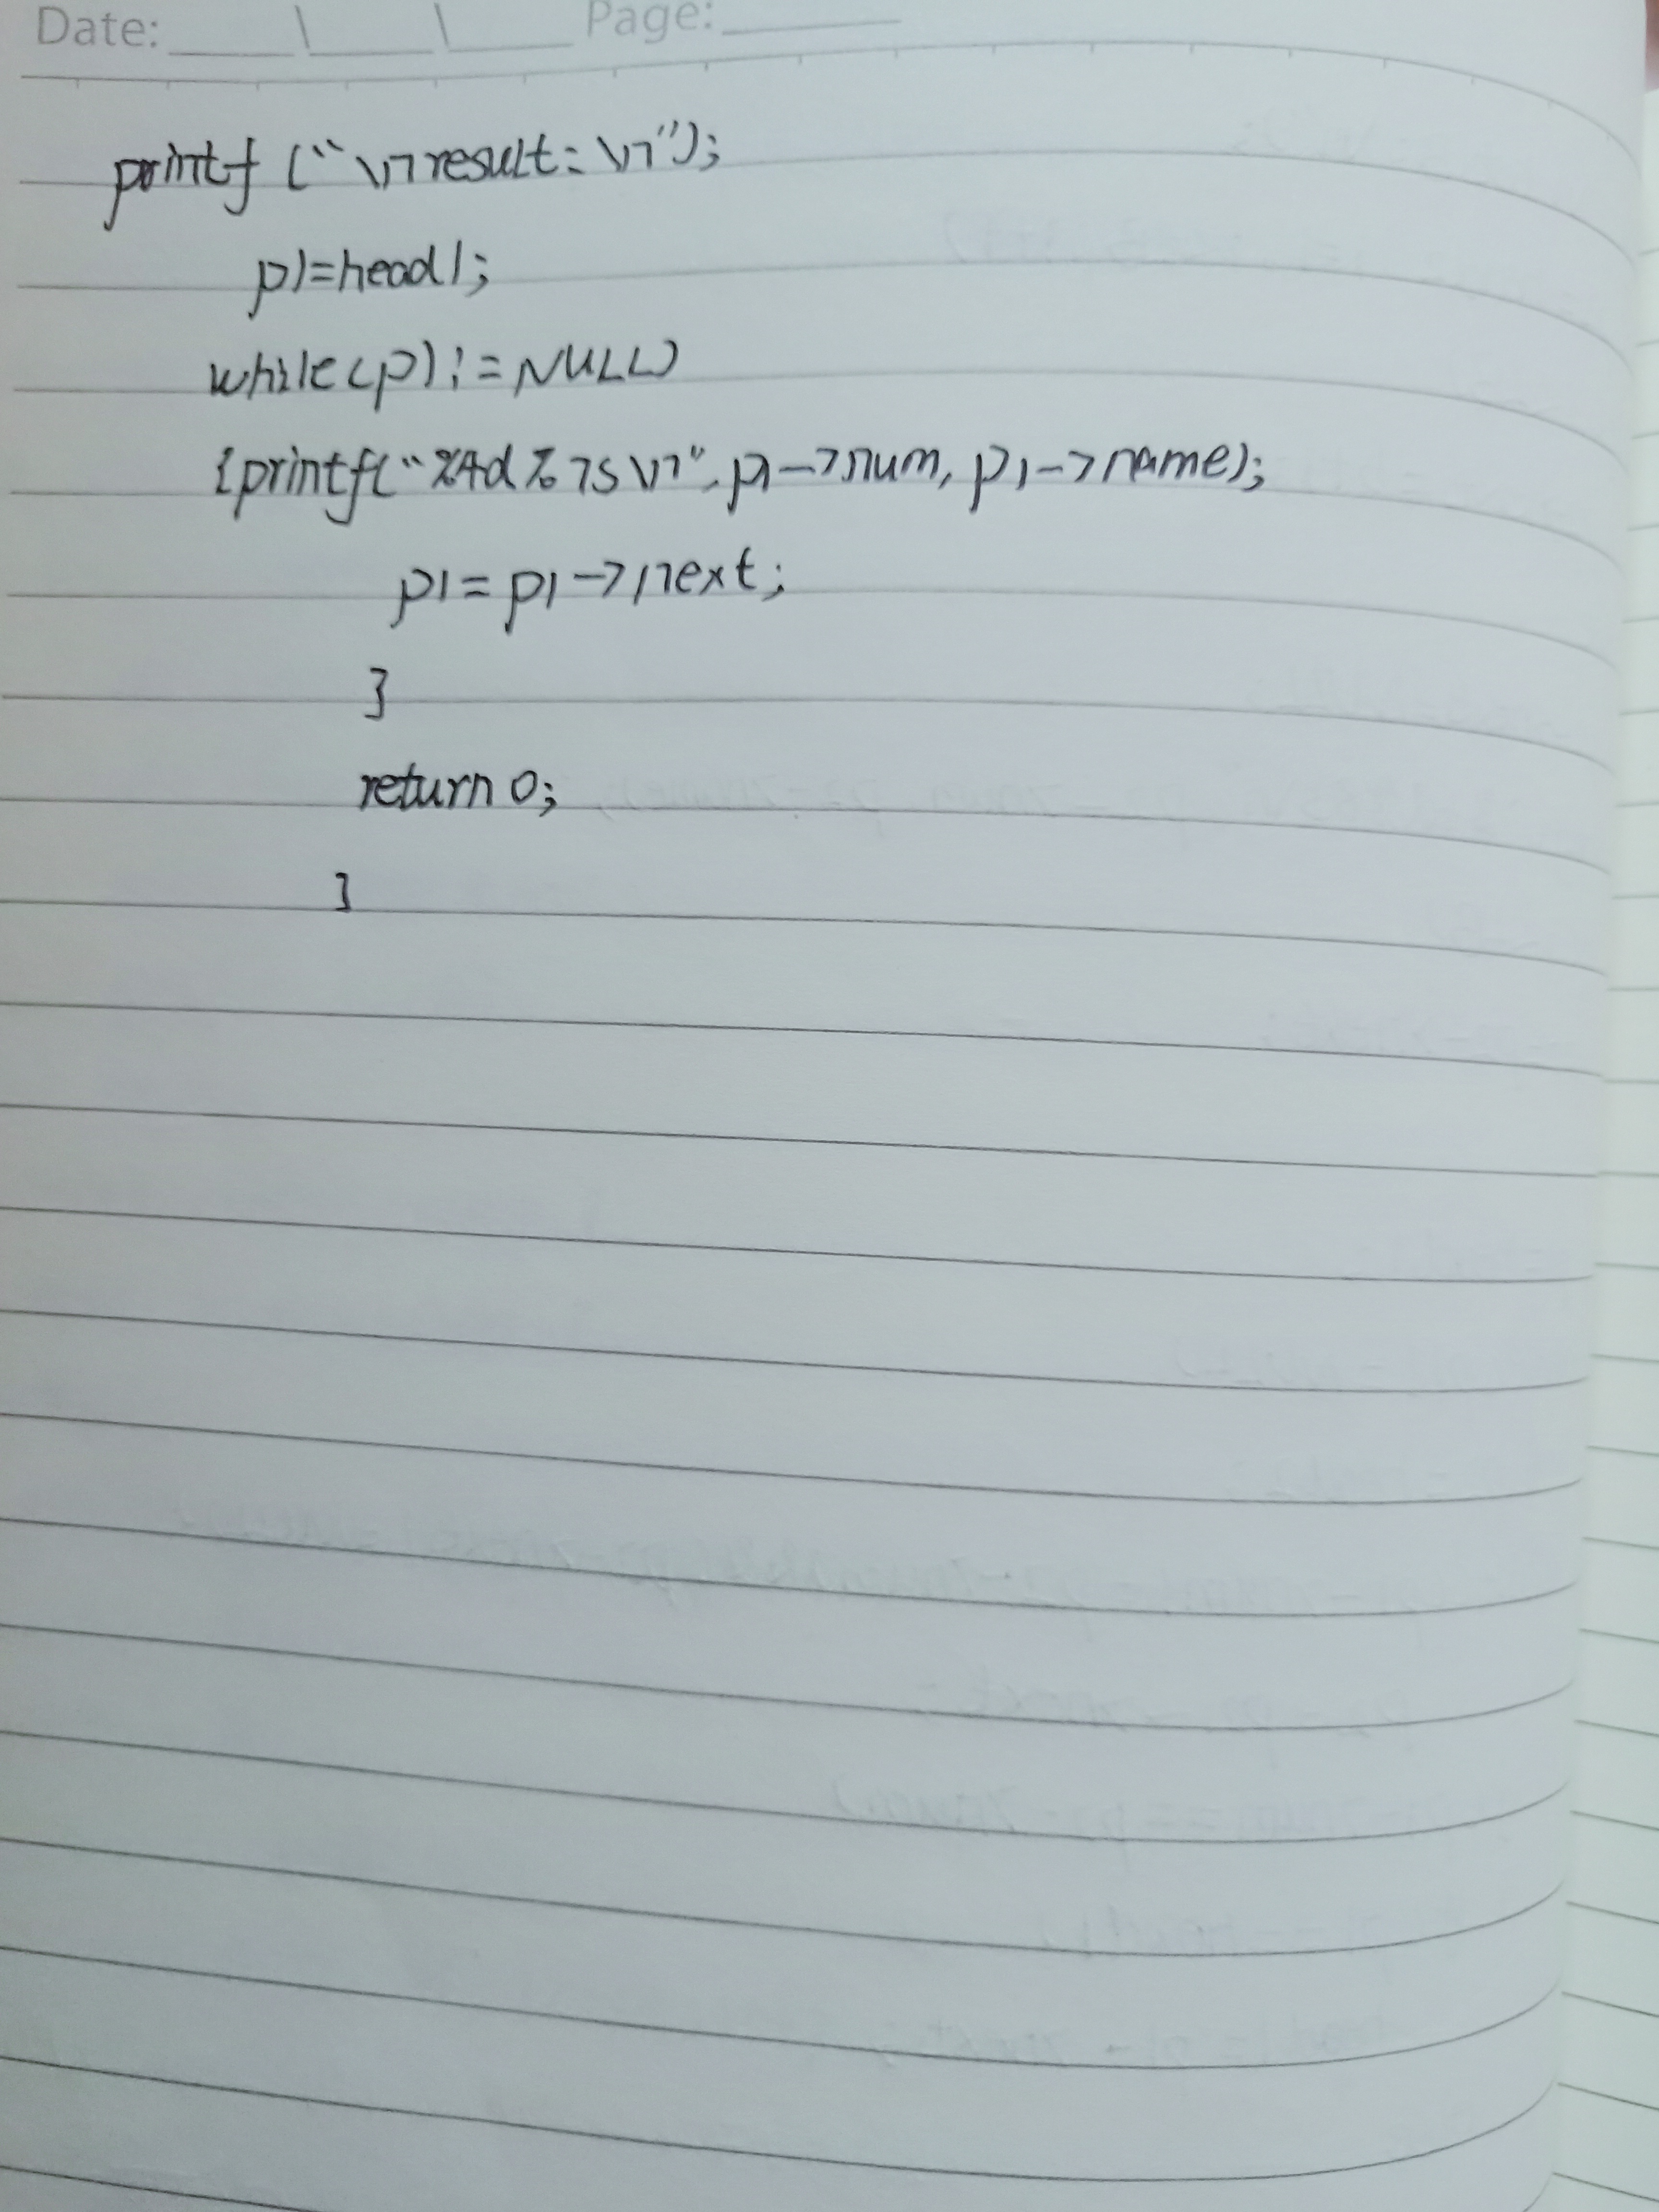 Date: ____\____\____ Page: ______
printf ("\nresult: \n");
p1=head1;
while(p1!=NULL)
{printf("%4d%7s\n", p1->num, p1->name);
p1=p1->next;
}
return 0;
}